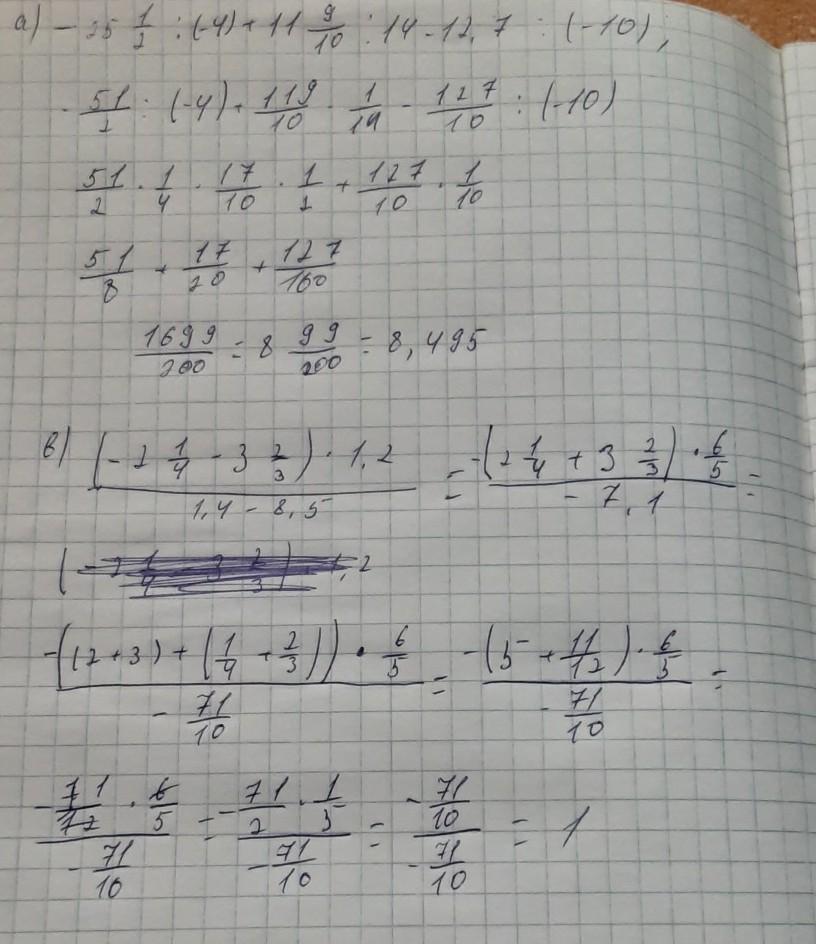 а) - 25 1/2 : (-4) + 11 9/10 : 14 - 12,7 : (-10);
- 51/2 : (-4) + 119/10 · 1/14 - 127/10 : (-10)
51/2 · 1/4 · 17/10 · 1/2 + 127/10 · 1/10
51/8 + 17/20 + 127/100
1699/200 = 8 99/200 = 8,495
в) (-2 1/4 - 3 2/3) · 1,2 / 1,4 - 8,5 = -(2 1/4 + 3 2/3) · 6/5 / -7,1 =
-((2+3) + (1/4 + 2/3)) · 6/5 / -71/10 = -(5 + 11/12) · 6/5 / -71/10 =
-71/12 · 6/5 / -71/10 = -71/2 · 1/5 / -71/10 = -71/10 / -71/10 = 1